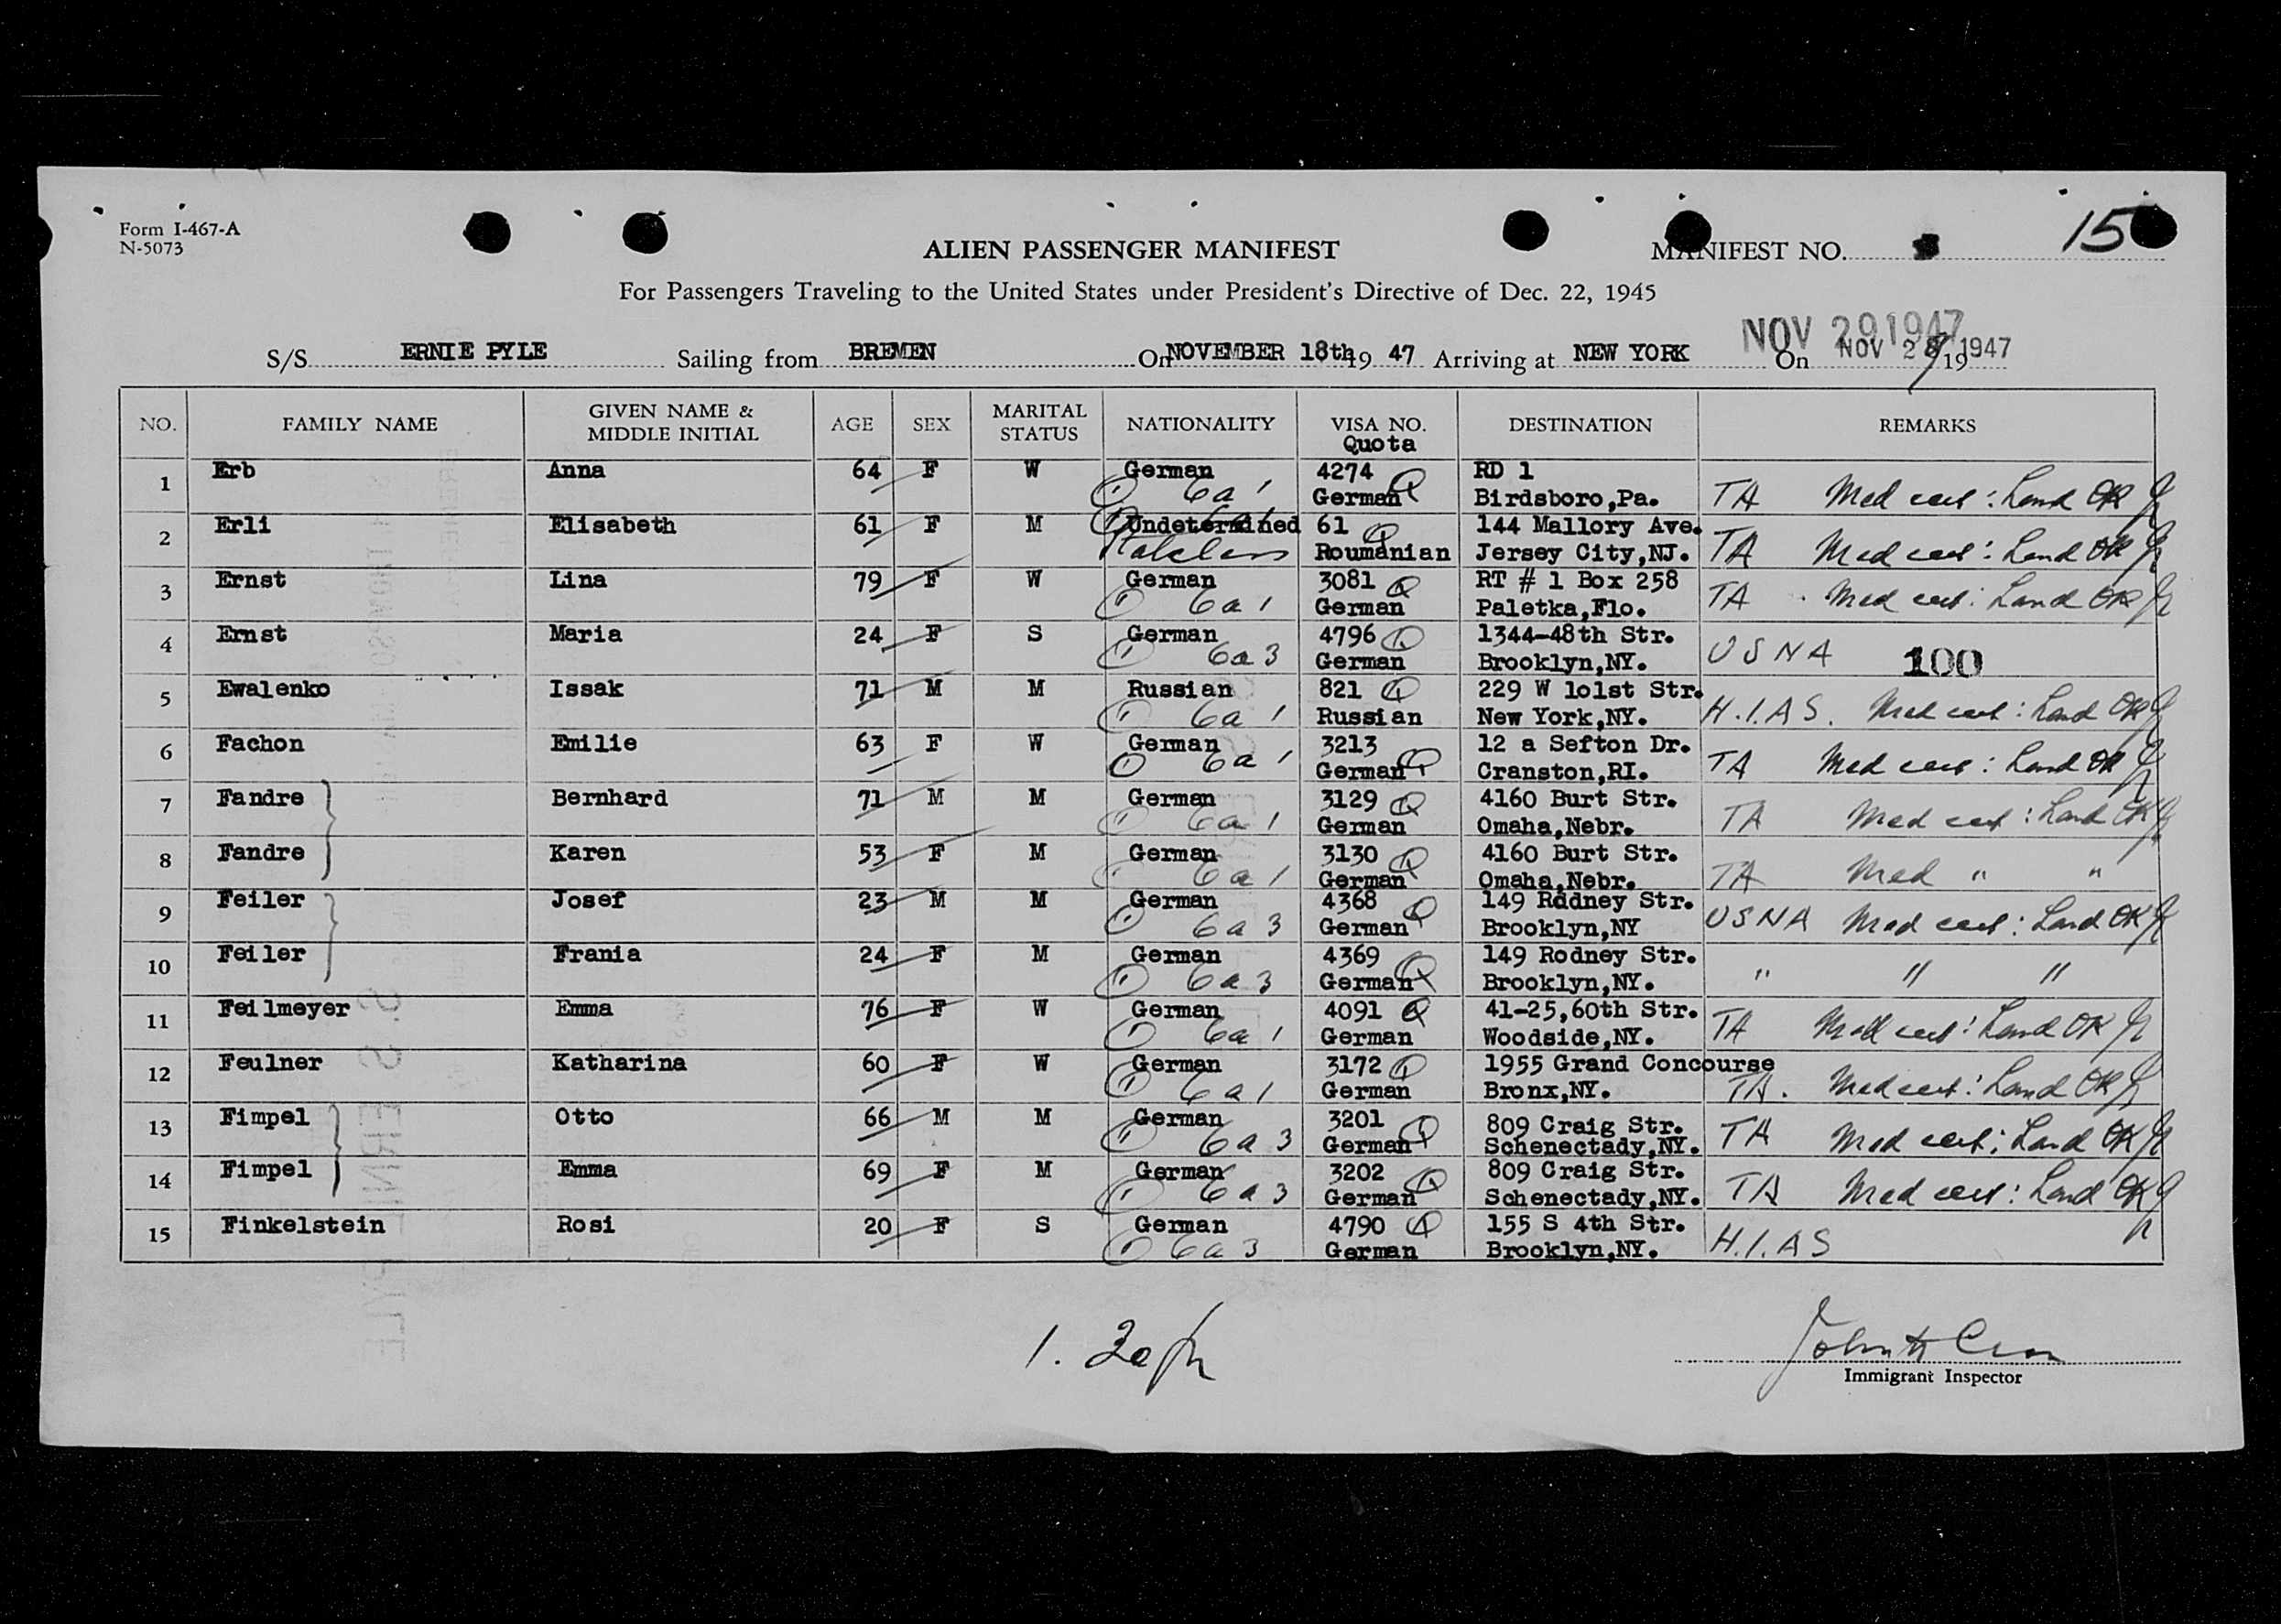 Form I-467-A
N-5073
ALIEN PASSENGER MANIFEST
MANIFEST NO. 15
For Passengers Traveling to the United States under President's Directive of Dec. 22, 1945
NOV 29 1947
S/S ERNIE PYLE Sailing from BREMEN On NOVEMBER 18th 19 47 Arriving at NEW YORK On NOV 28 1947 19
NO. FAMILY NAME GIVEN NAME & MIDDLE INITIAL AGE SEX MARITAL STATUS NATIONALITY VISA NO. Quota DESTINATION REMARKS
1 Erb Anna 64 F W German 4274 Q RD 1
6a1 German Birdsboro,Pa. TA Med cert: Land OK
2 Erli Elisabeth 61 F M Undetermined 61 Q 144 Mallory Ave.
Stateless Roumanian Jersey City,NJ. TA Med cert: Land OK
3 Ernst Lina 79 F W German 3081 Q RT # 1 Box 258
6a1 German Paletka,Flo. TA Med cert: Land OK
4 Ernst Maria 24 F S German 4796 Q 1344-48th Str.
6a3 German Brooklyn,NY. USNA 100
5 Ewalenko Issak 71 M M Russian 821 Q 229 W 1o1st Str.
6a1 Russian New York,NY. H.I.A.S. Med cert: Land OK
6 Fachon Emilie 63 F W German 3213 12 a Sefton Dr.
6a1 German Q Cranston,RI. TA Med cert: Land OK
7 Fandre Bernhard 71 M M German 3129 Q 4160 Burt Str.
6a1 German Omaha,Nebr. TA Med cert: Land OK
8 Fandre Karen 53 F M German 3130 Q 4160 Burt Str.
6a1 German Omaha,Nebr. TA Med " "
9 Feiler Josef 23 M M German 4368 Q 149 Rddney Str.
6a3 German Brooklyn,NY USNA Med cert: Land OK
10 Feiler Frania 24 F M German 4369 Q 149 Rodney Str.
6a3 German Brooklyn,NY. " " "
11 Feilmeyer Emma 76 F W German 4091 Q 41-25,60th Str.
6a1 German Woodside,NY. TA Med cert: Land OK
12 Feulner Katharina 60 F W German 3172 Q 1955 Grand Concourse
6a1 German Bronx,NY. TA. Med cert: Land OK
13 Fimpel Otto 66 M M German 3201 Q 809 Craig Str.
6a3 German Schenectady,NY. TA Med cert: Land OK
14 Fimpel Emma 69 F M German 3202 Q 809 Craig Str.
6a3 German Schenectady,NY. TA Med cert: Land OK
15 Finkelstein Rosi 20 F S German 4790 Q 155 S 4th Str.
6a3 German Brooklyn,NY. H.I.A.S
Immigrant Inspector